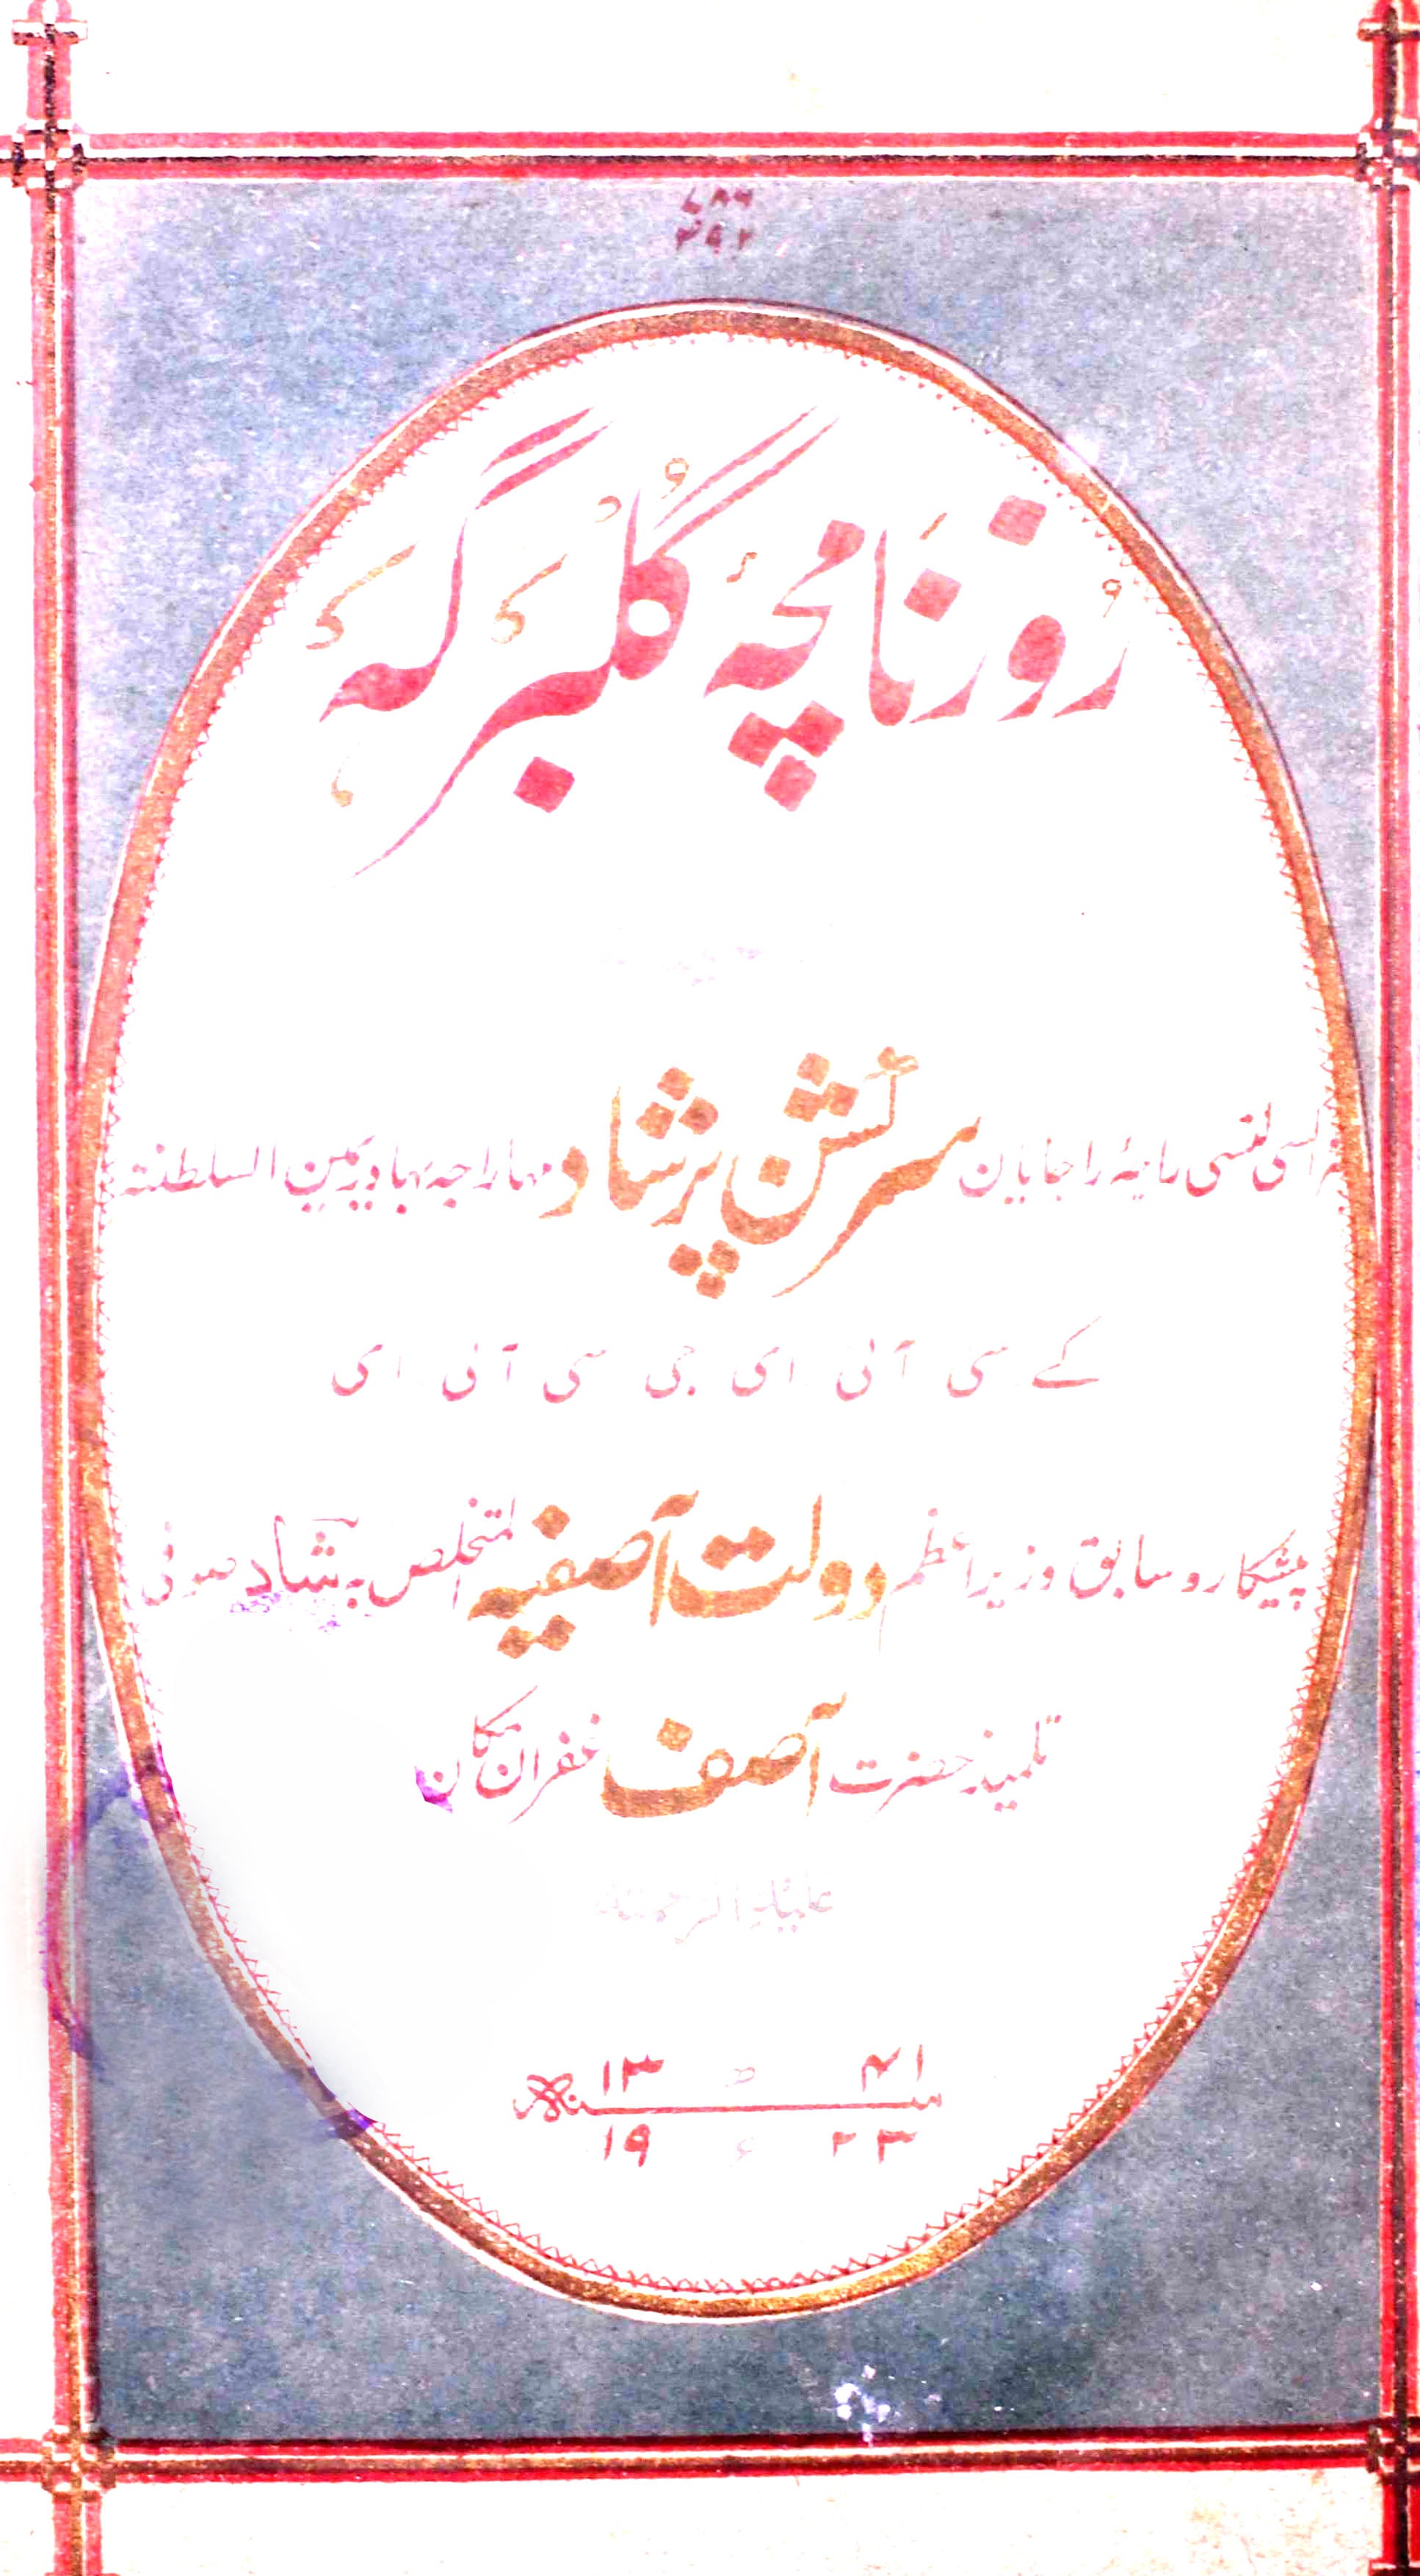 ۷۸۶
روزنامچۂ گلبرگہ
ہز اکسی لنسی راجۂ راجایان سرکشن پرشاد مہاراجہ بہادر یمین السلطنتہ
کے سی آئی ای جی سی آئی ای
پیشکار و سابق وزیر اعظم دولت آصفیہ المتخلص بہ شاد صوفی
تلمیذ حضرت آصف غفران مکان
علیہ الرحمتہ
۱۳ ھ ۴۱
سنہ
۱۹ ء ۲۳